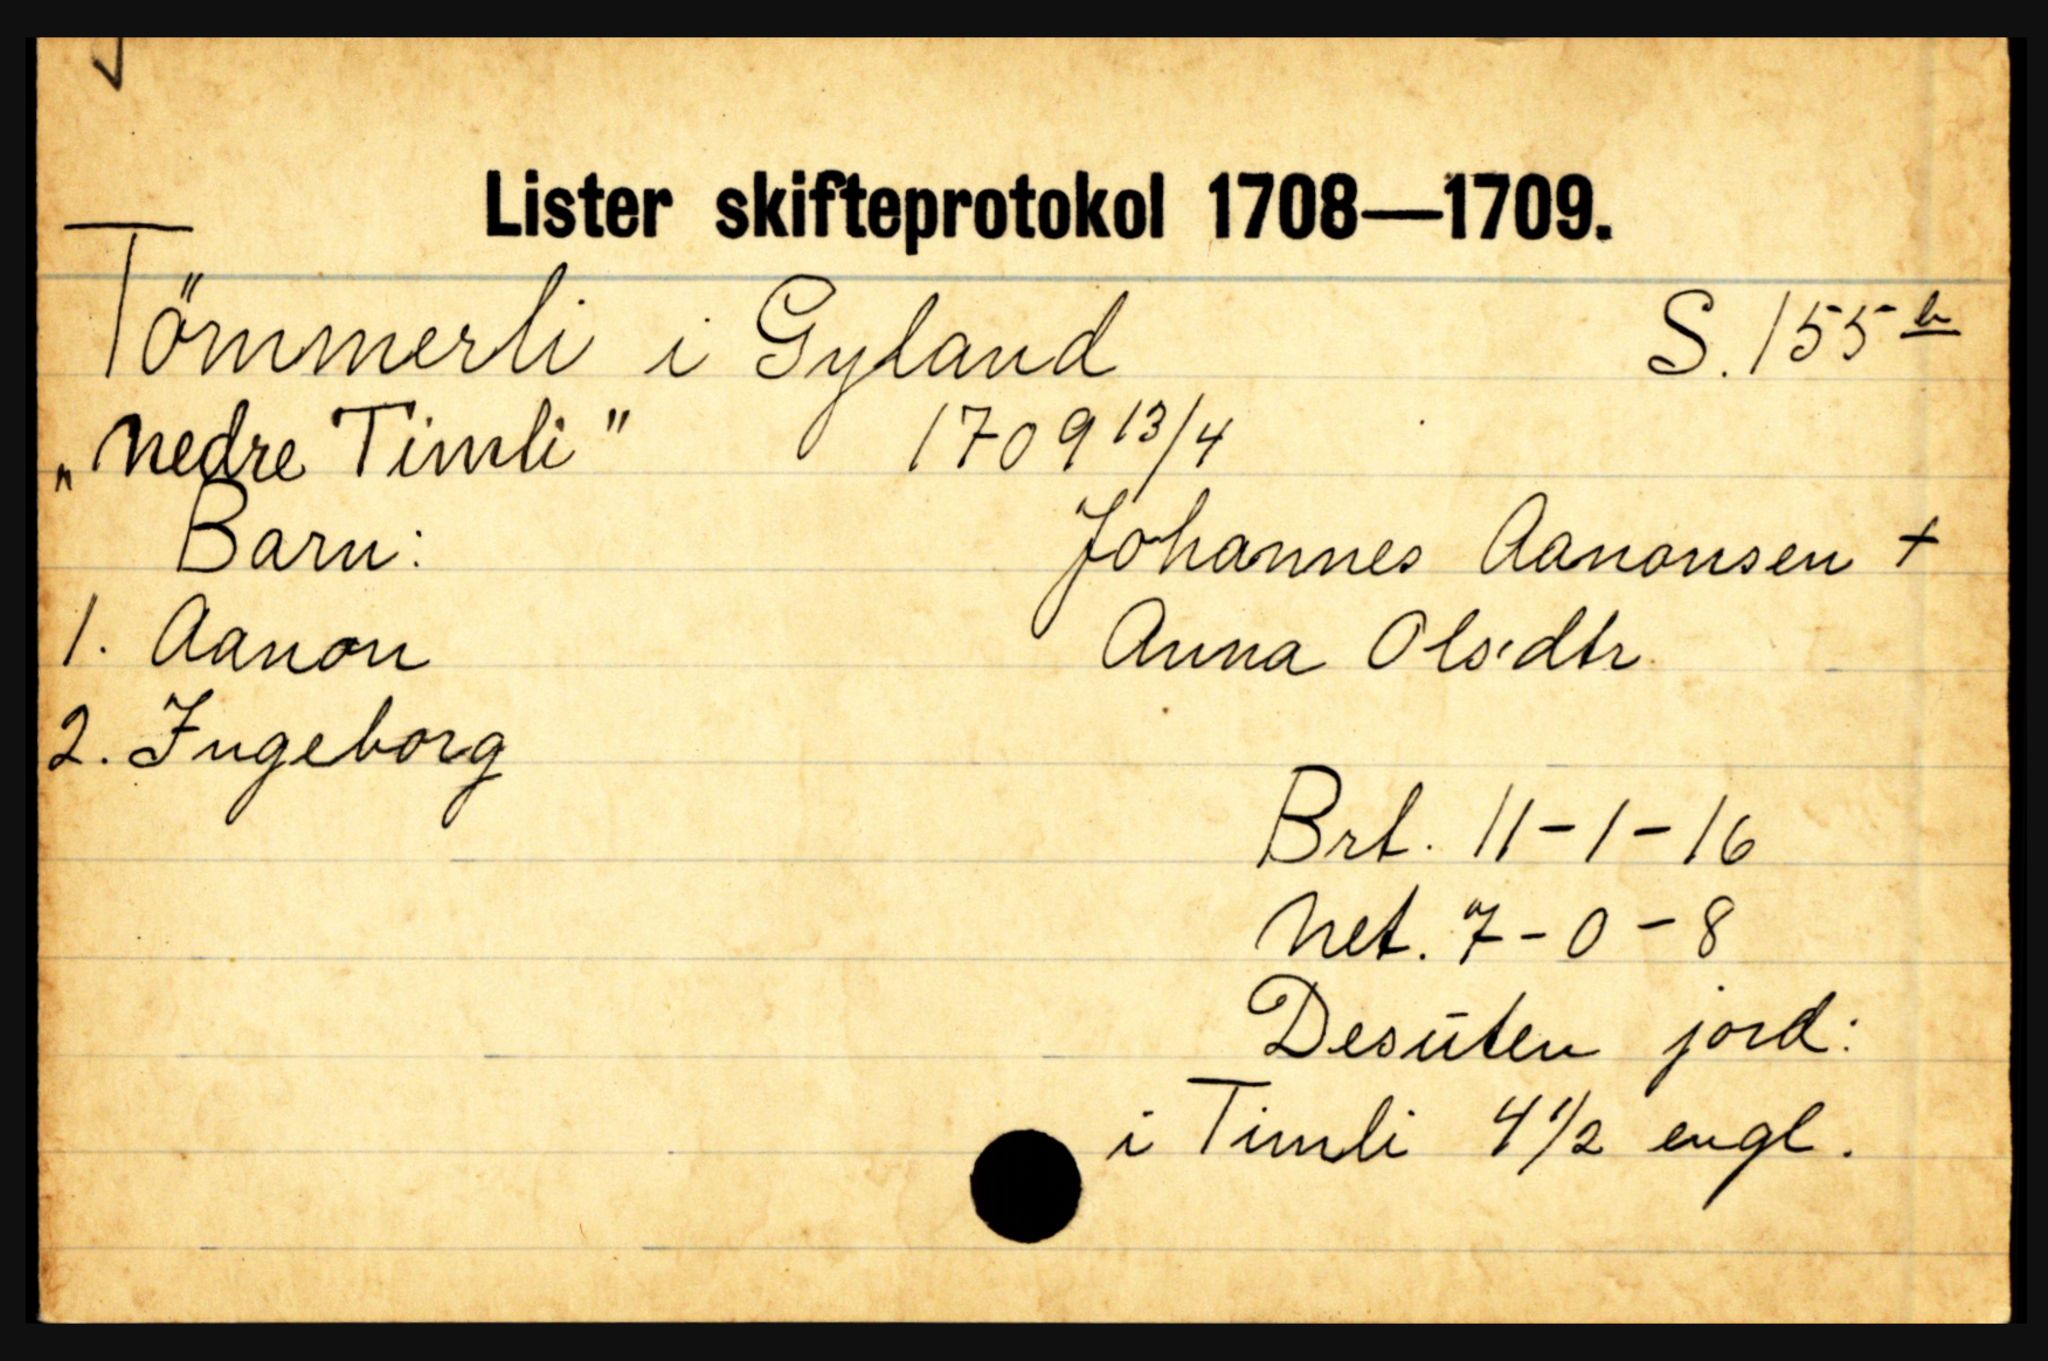 Lister skifteprotokol 1708—1709.
Tömmerli i Gyland S. 155 b
„Nedre Timli" 1709 13/4
Barn: Johannes Aanonsen +
1. Aanon Anna Olsdtr.
2. Ingeborg
Brt. 11-1-16
Net. 7-0-8
Desuten jord:
i Timli 4 1/2 engl.